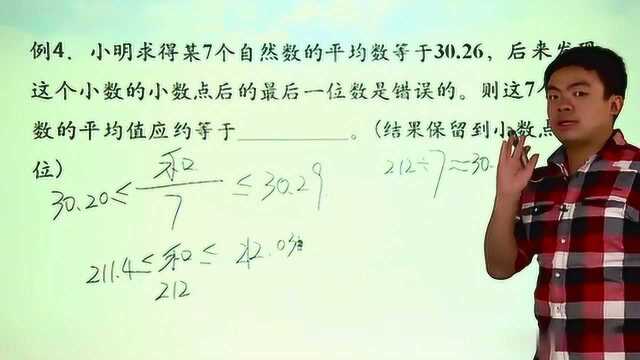 例4. 小明求得某7个自然数的平均数等于30.26, 后来发现
这个小数的小数点后的最后一位数是错误的。则这7个
数的平均值应约等于________。(结果保留到小数点
位)
30.20≤ 和/7 ≤30.29
212÷7≈30.
211.4≤和≤212.0
212